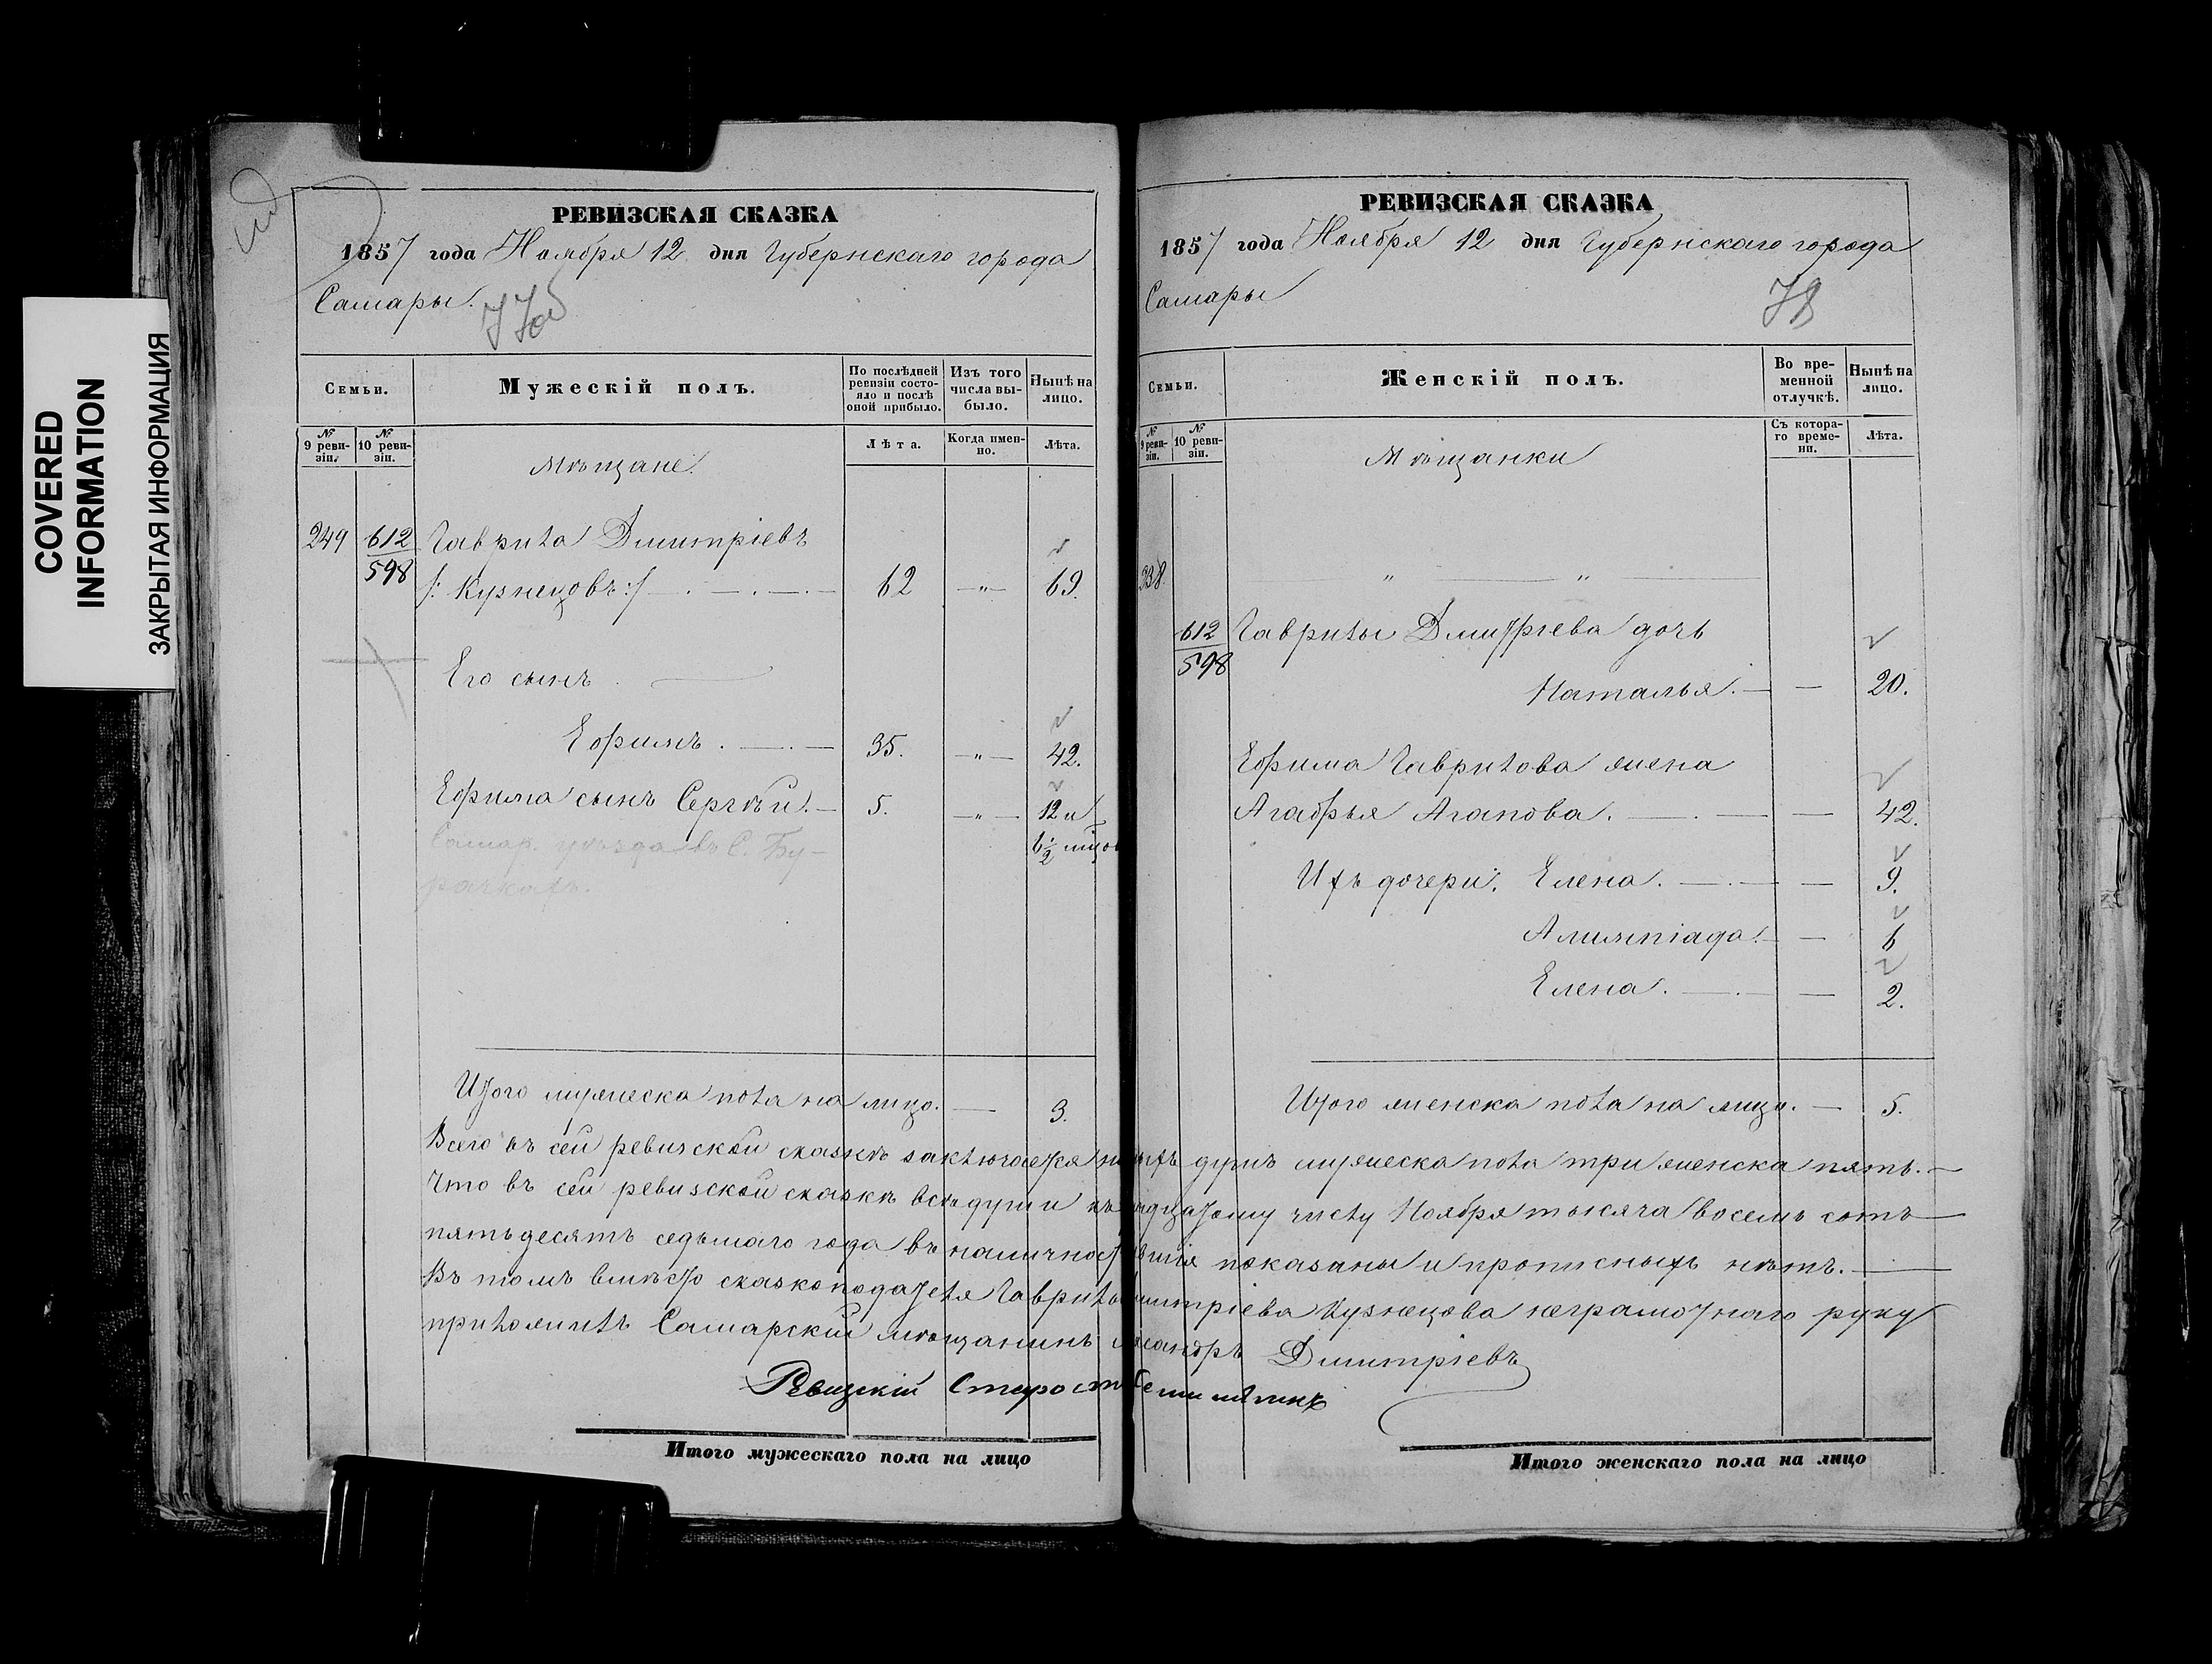 COVERED
INFORMATION
ЗАКРЫТАЯ ИНФОРМАЦИЯ
РЕВИЗСКАЯ СКАЗКА
1857 года Ноября 12 дня Губернскаго города
Самары.
77об
Семьи.
Мужескій полъ.
По послѣдней ревизіи состояло и послѣ оной прибыло.
Изъ того числа выбыло.
Нынѣ на лицо.
№ 9 ревизіи.
№ 10 ревизіи.
Мѣщане.
Лѣта.
Когда именно.
Лѣта.
249 612 Гаврила Дмитріевъ
598 /: Кузнецовъ :/ 62 —"— 69.
Его сынъ
Ефимъ. 35. —"— 42.
Ефима сынъ Сергѣй. 5. —"— 12 и
6 1/2 мѣцов
Самар. уѣзда въ С. Бу-
рачкахъ.
Итого мужеска пола на лицо. 3.
РЕВИЗСКАЯ СКАЗКА
1857 года Ноября 12 дня Губернскаго города
Самары
78
Семьи.
Женскій полъ.
Во временной отлучкѣ.
Нынѣ на лицо.
№ 9 ревизіи.
№ 10 ревизіи.
Мѣщанки
Съ котораго времени.
Лѣта.
" "
612 Гаврилы Дмитріева дочь
598
Наталья. — 20.
Ефима Гаврилова жена
Агафья Агапова. — 42.
Ихъ дочери: Елена. — 9.
Алимпіада. — 6
Елена. — 2.
Итого женска пола на лицо. — 5.
Всего въ сей ревизской сказкѣ заключается душъ мужеска пола три женска пять.
Что въ сей ревизской сказкѣ всѣ души къ числу Ноября тысяча восемь сотъ
пятьдесятъ седьмаго года въ показаны и прописныхъ нѣтъ.
Въ томъ вмѣсто сказкоподателя Гаврилы Дмитріева Кузнецова неграмотнаго руку
приложилъ Самарскій мѣщанинъ Дмитріевъ
Ревизскій Староста
Итого мужескаго пола на лицо
Итого женскаго пола на лицо